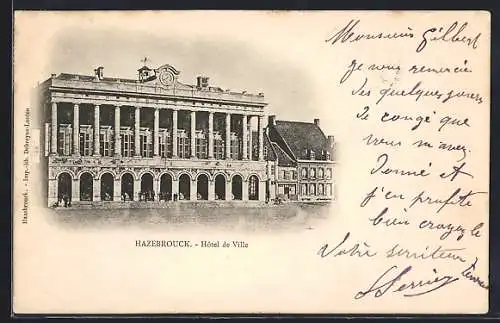 Hazebrouck. - Imp.-lith. Debreyne-Lantez
HAZEBROUCK. - Hôtel de Ville
Monsieur Gilbert
Je vous remercie
des quelques jours
de congé que
vous m'avez
donné et
j'en profite
bien croyez le
Votre serviteur